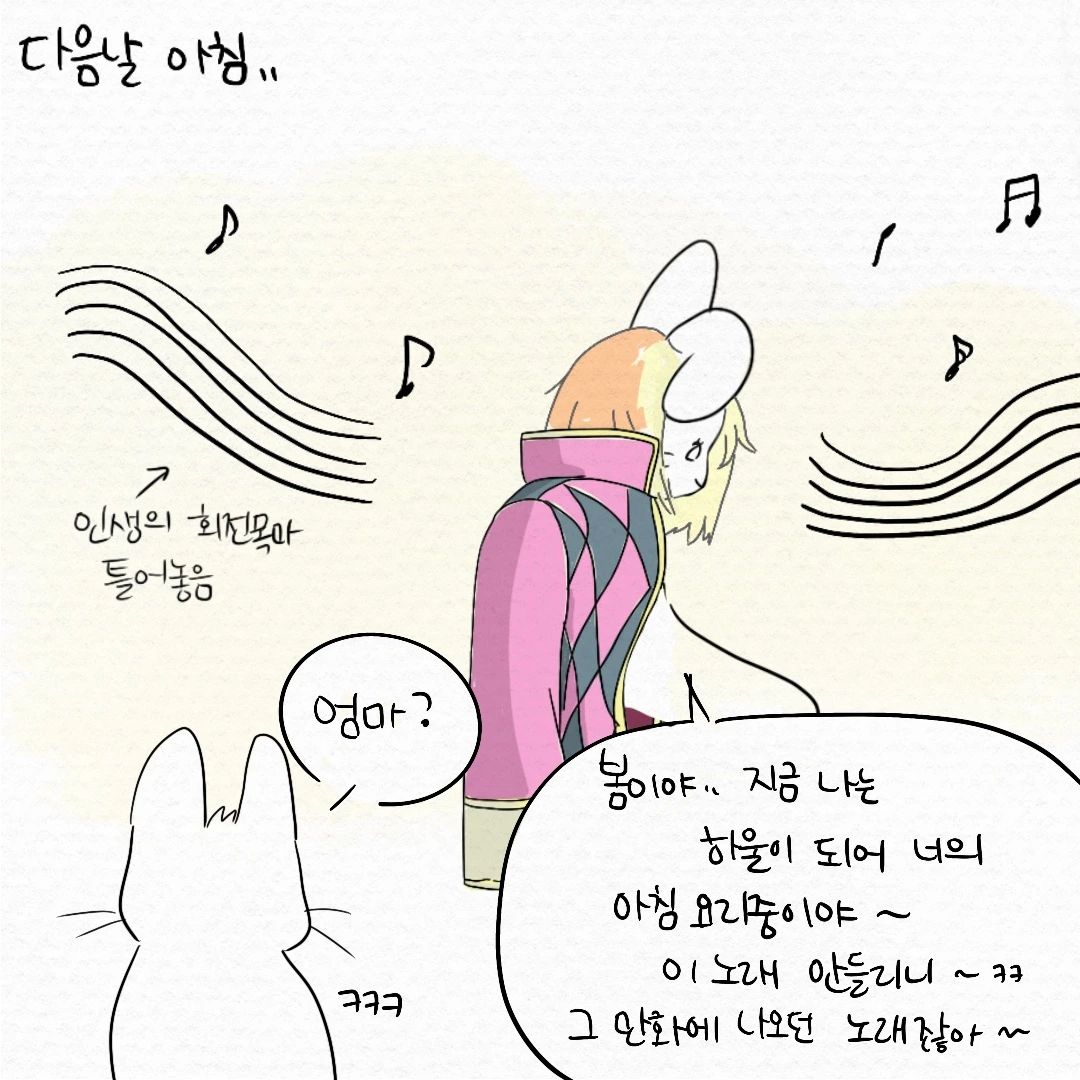 다음날 아침..
인생의 회전목마
틀어놓음
엄마?
봄이야.. 지금 나는
하울이 되어 너의
아침 요리중이야 ~
이 노래 안들리니 ~ ㅋㅋ
그 만화에 나오던 노래잖아 ~
ㅋㅋㅋ